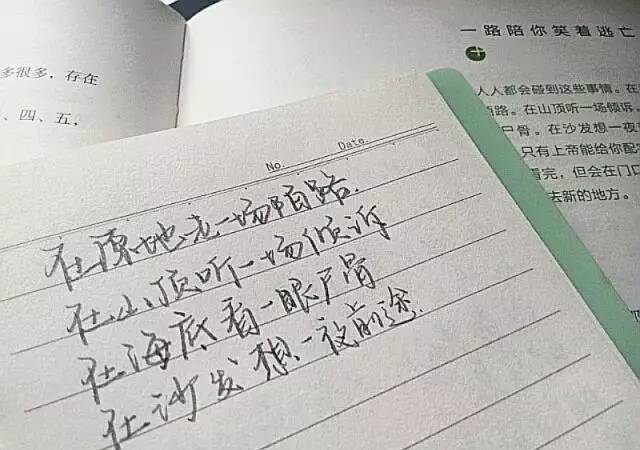 一路陪你笑着逃亡
多很多，存在
、四、五，
人人都会碰到这些事情。在
陌路。在山顶听一场倾诉。
尸骨。在沙发想一夜
只有上帝能给你配
看完，但会在门口
去新的地方。
No. Date.
在原地走一场陌路.
在山顶听一场倾诉
在海底看一眼尸骨
在沙发想一夜前途.